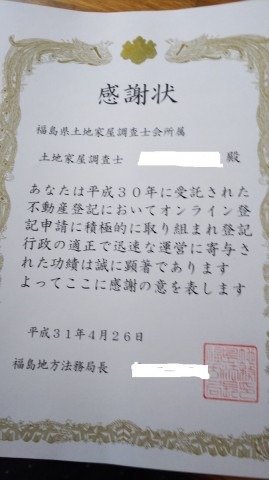 感謝状
福島県土地家屋調査士会所属
土地家屋調査士 殿
あなたは平成３０年に受託された
不動産登記においてオンライン登
記申請に積極的に取り組まれ登記
行政の適正で迅速な運営に寄与さ
れた功績は誠に顕著であります
よってここに感謝の意を表します
平成３１年４月２６日
福島地方法務局長